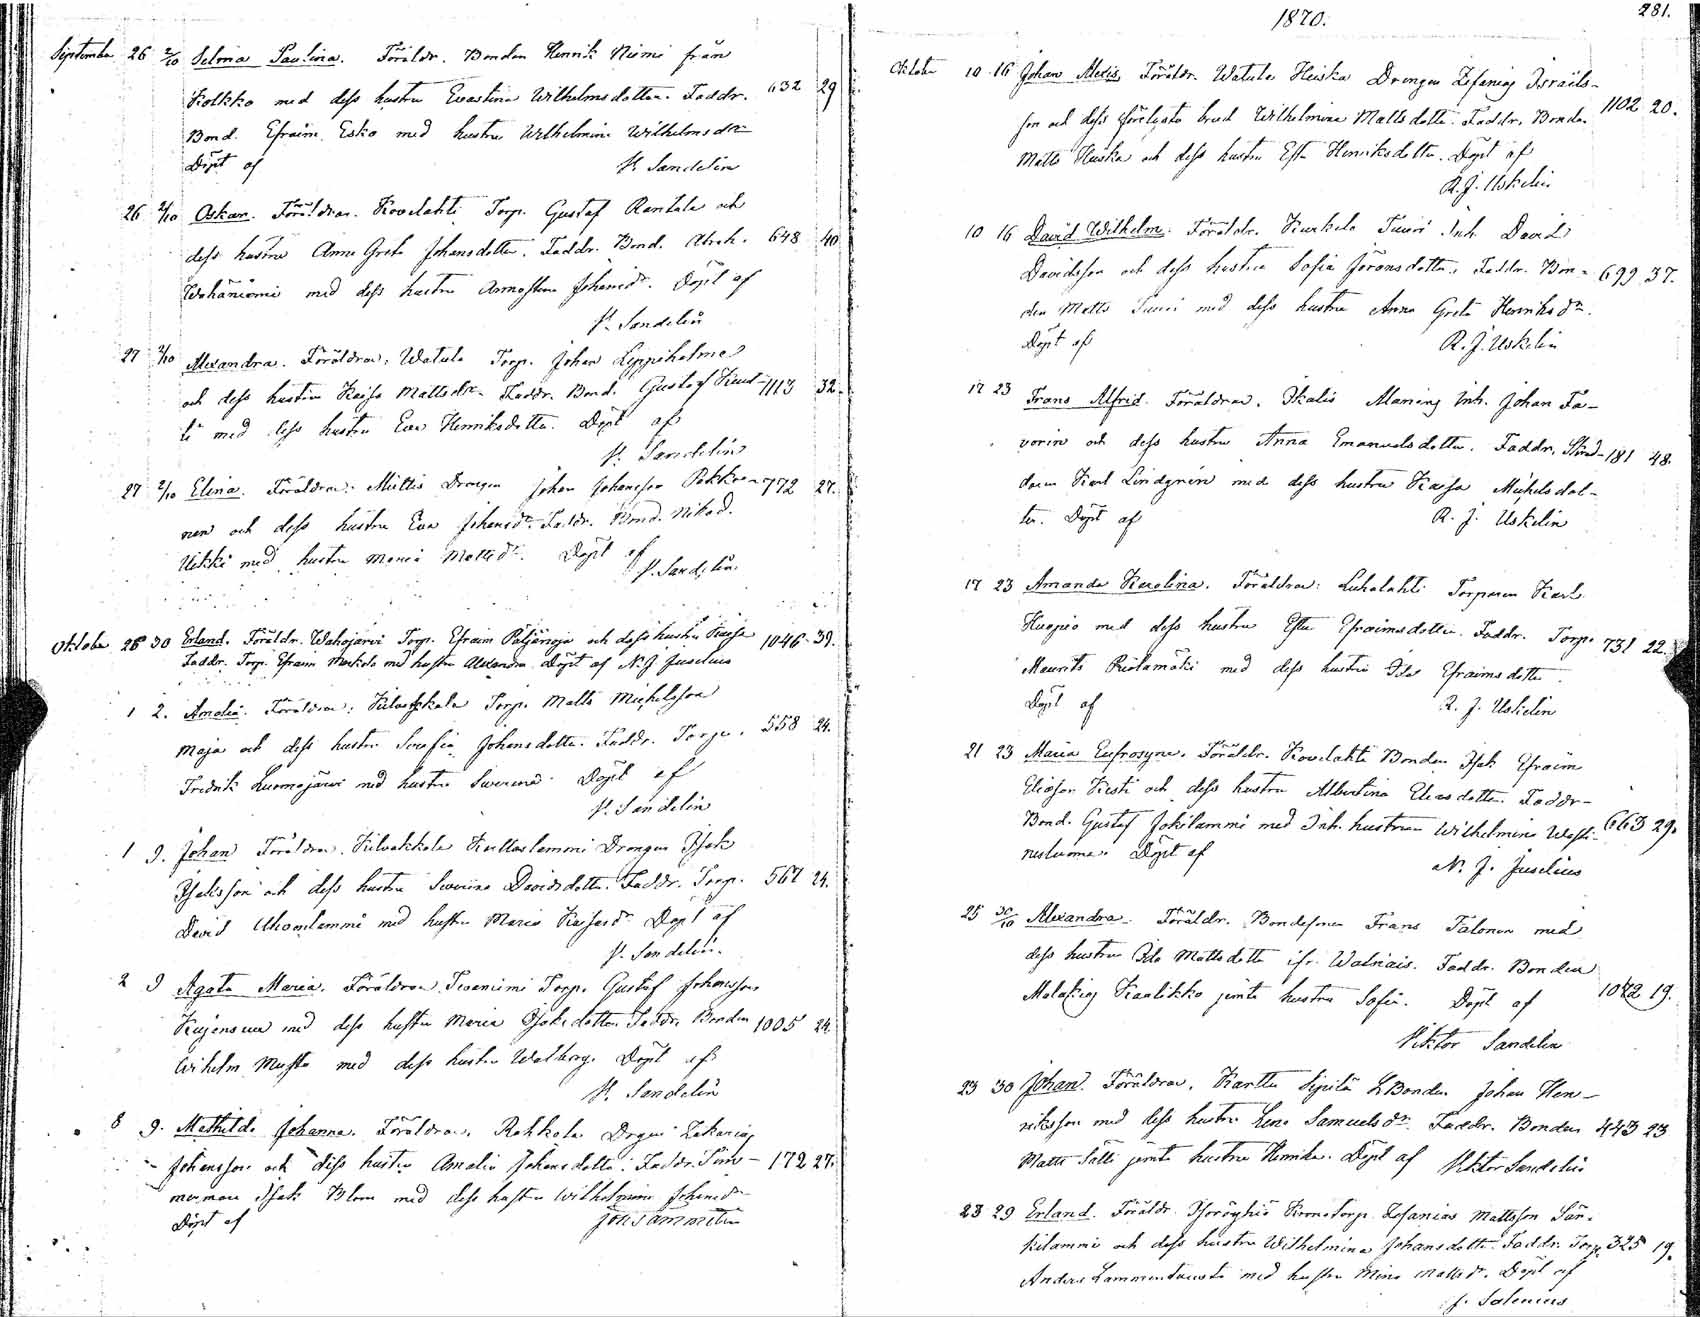 September 26 2/10 Selma Paulina. Föräldr. Bonden Henrik Niemi från
Kolkko med dess hustru Evastina Wilhelmsdotter. Faddr. 632 29
Bond. Efraim Esko med hustru Wilhelmina Wilhelmsdr
Döpt af V. Sandelin
26 2/10 Oskar. Föräldrar. Kovelahti Torp. Gustaf Rantala och
dess hustru Anna Greta Johansdotter. Faddr. Bond. Abrah. 648 40
med dess hustru Johansdr. Döpt af
V. Sandelin
27 2/10 Alexandra. Föräldrar. Watula Torp. Johan Leppihalme
och dess hustru Kaisa Mattsdr. Faddr. Bond. Gustaf 1113 32
med dess hustru Eva Henriksdotter. Döpt af
V. Sandelin
27 2/10 Elina. Föräldrar. Miettis Drengen Johan Johansson Pekko- 772 27.
nen och dess hustru Eva Johansdr. Faddr. Bond. Nikod.
Uskki med hustru Maria Mattsdr. Döpt af
V. Sandelin.
Oktober 26 30 Erland. Föräldr. Wahojärvi Torp. Efraim och dess hustru Kaisa 1046 39.
Faddr. Torp. Efraim Markola med hustru Alexandra. Döpt af N. J. Juselius
1 2. Amalia. Föräldrar. Kilvakkala Torp. Matts Michelsson
Maja och dess hustru Serafia Johansdotter. Faddr. Torp. 558 24.
Fredrik Luomajärvi med hustru Severina. Döpt af
V. Sandelin
1 9. Johan Föräldrar. Kilvakkala Kuttaslammi Drengen Isak
Isaksson och dess hustru Severina Davidsdotter. Faddr. Torp. 567 24.
David med hustru Maria Döpt af
V. Sandelin.
2 9 Agata Maria. Föräldrar. Tevaniemi Torp. Gustaf Johansson
Kujansuu med dess hustru Maria Isaksdotter. Faddr. Bonden 1005 24.
Wilhelm Musta med dess hustru Walborg. Döpt af
V. Sandelin
8 9. Mathilda Johanna. Föräldrar. Rahkola Drgn Zakarias
Johansson och dess hustru Amalia Johansdotter. Faddr. Tim- 172 27.
merman Isak Blom med dess hustru Wilhelmina Johansdr
Döpt af Joh. Tammelin
1870.
281.
Oktober 10 16 Johan Alexis. Föräldr. Watula Heiska Drengen Zefanias Israels-
son och dess förelysta brud Wilhelmina Mattsdotter. Faddr. Bonden 1102 20.
Matts Heiska och dess hustru Efta Henriksdotter. Döpt af
R. J. Uskelin
10 16 David Wilhelm. Föräldr. Kurkela Tuuri Inh. David
Davidsson och dess hustru Sofia Göransdotter. Faddr. Bon- 699 37.
den Matts Tuuri med dess hustru Anna Greta Henriksdr.
Döpt af R. J. Uskelin
17 23 Frans Alfrid. Föräldrar. Ikalis Maning Inh. Johan Fa-
vorin och dess hustru Anna Emanuelsdotter. Faddr. 181 48.
Karl Lindgrén med dess hustru Kaisa Michelsdot-
ter. Döpt af R. J. Uskelin
17 23 Amanda Karolina. Föräldrar. Luhalahti Torparen Karl
Kuopio med dess hustru Efta Efraimsdotter. Faddr. Torp. 731 22.
Maurits Riitamäki med dess hustru Ida Efraimsdotter.
Döpt af R. J. Uskelin
21 23 Maria Eufrosyne. Föräldr. Kovelahti Bonden Isak Efraim
Eliasson Kesti och dess hustru Albertina Eliasdotter. Faddr.
Bond. Gustaf Jokilammi med Inh. hustrun Wilhelmina 663 29.
Döpt af N. J. Juselius
25 30/10 Alexandra. Föräldr. Bondesonen Frans Talonen med
dess hustru Ida Mattsdotter ifr. Watniais. Faddr. Bonden
Malakias Kaalikko jemte hustru Sofia. Döpt af 1072 19.
Viktor Sandelin
23 30 Johan. Föräldrar. Karttu Sipilä L.Bonden Johan Hen-
riksson med dess hustru Lena Samuelsdr. Faddr. Bonden 443 23
Matts Sälli jemte hustru Henrika. Döpt af Viktor Sandelin
23 29 Erland. Föräldr. Kronotorp. Zefanias Mattsson Sär-
kilammi och dess hustru Wilhelmina Johansdotter. Faddr. Torp. 325 19.
Anders Lammentausta med hustru Mina Mattsdr. Döpt af
J. Salenius